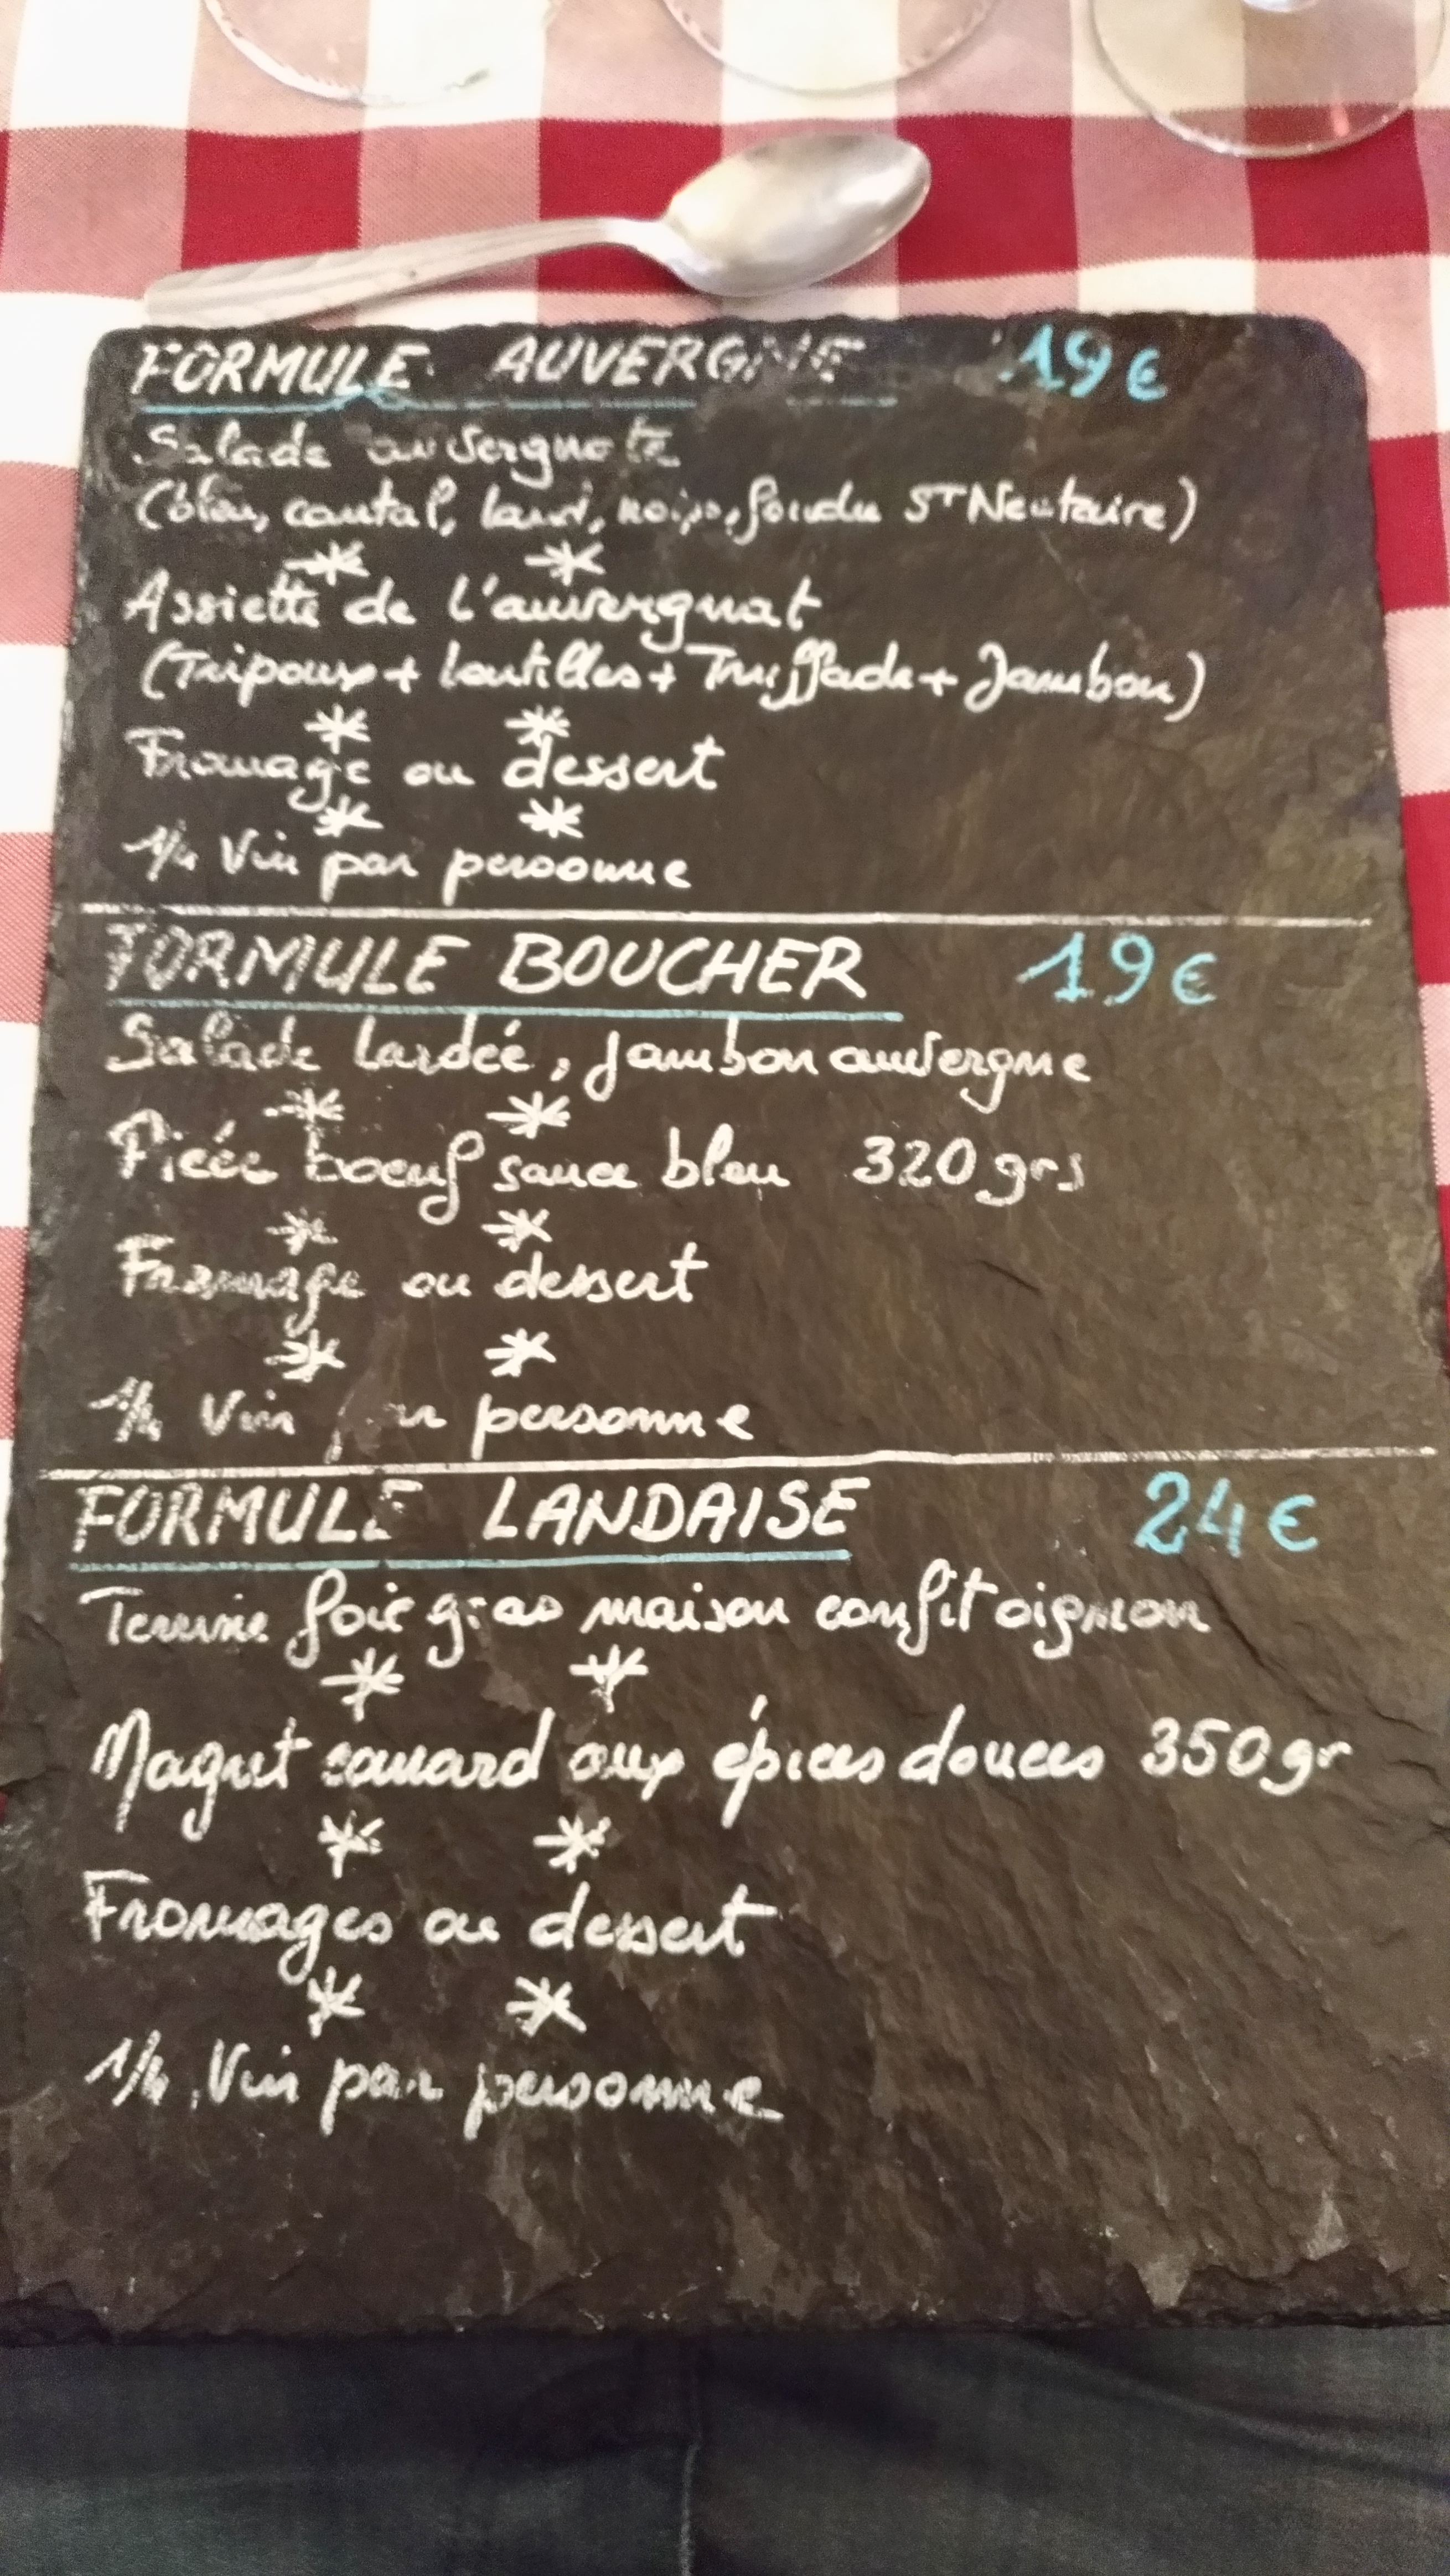 FORMULE AUVERGNE 19€
Salade auvergnate
(bleu, cantal, lard, noix, fondu St Nectaire)
* *
Assiette de l'auvergnat
(Tripoux + lentilles + Truffade + Jambon)
* *
Fromage ou dessert
* *
1/4 Vin par personne
FORMULE BOUCHER 19€
Salade lardée, jambon auvergne
* *
Pièce boeuf sauce bleu 320 grs
* *
Fromage ou dessert
* *
1/4 Vin par personne
FORMULE LANDAISE 24€
Terrine foie gras maison confit oignon
* *
Magret canard aux épices douces 350gr
* *
Fromages ou dessert
* *
1/4 Vin par personne